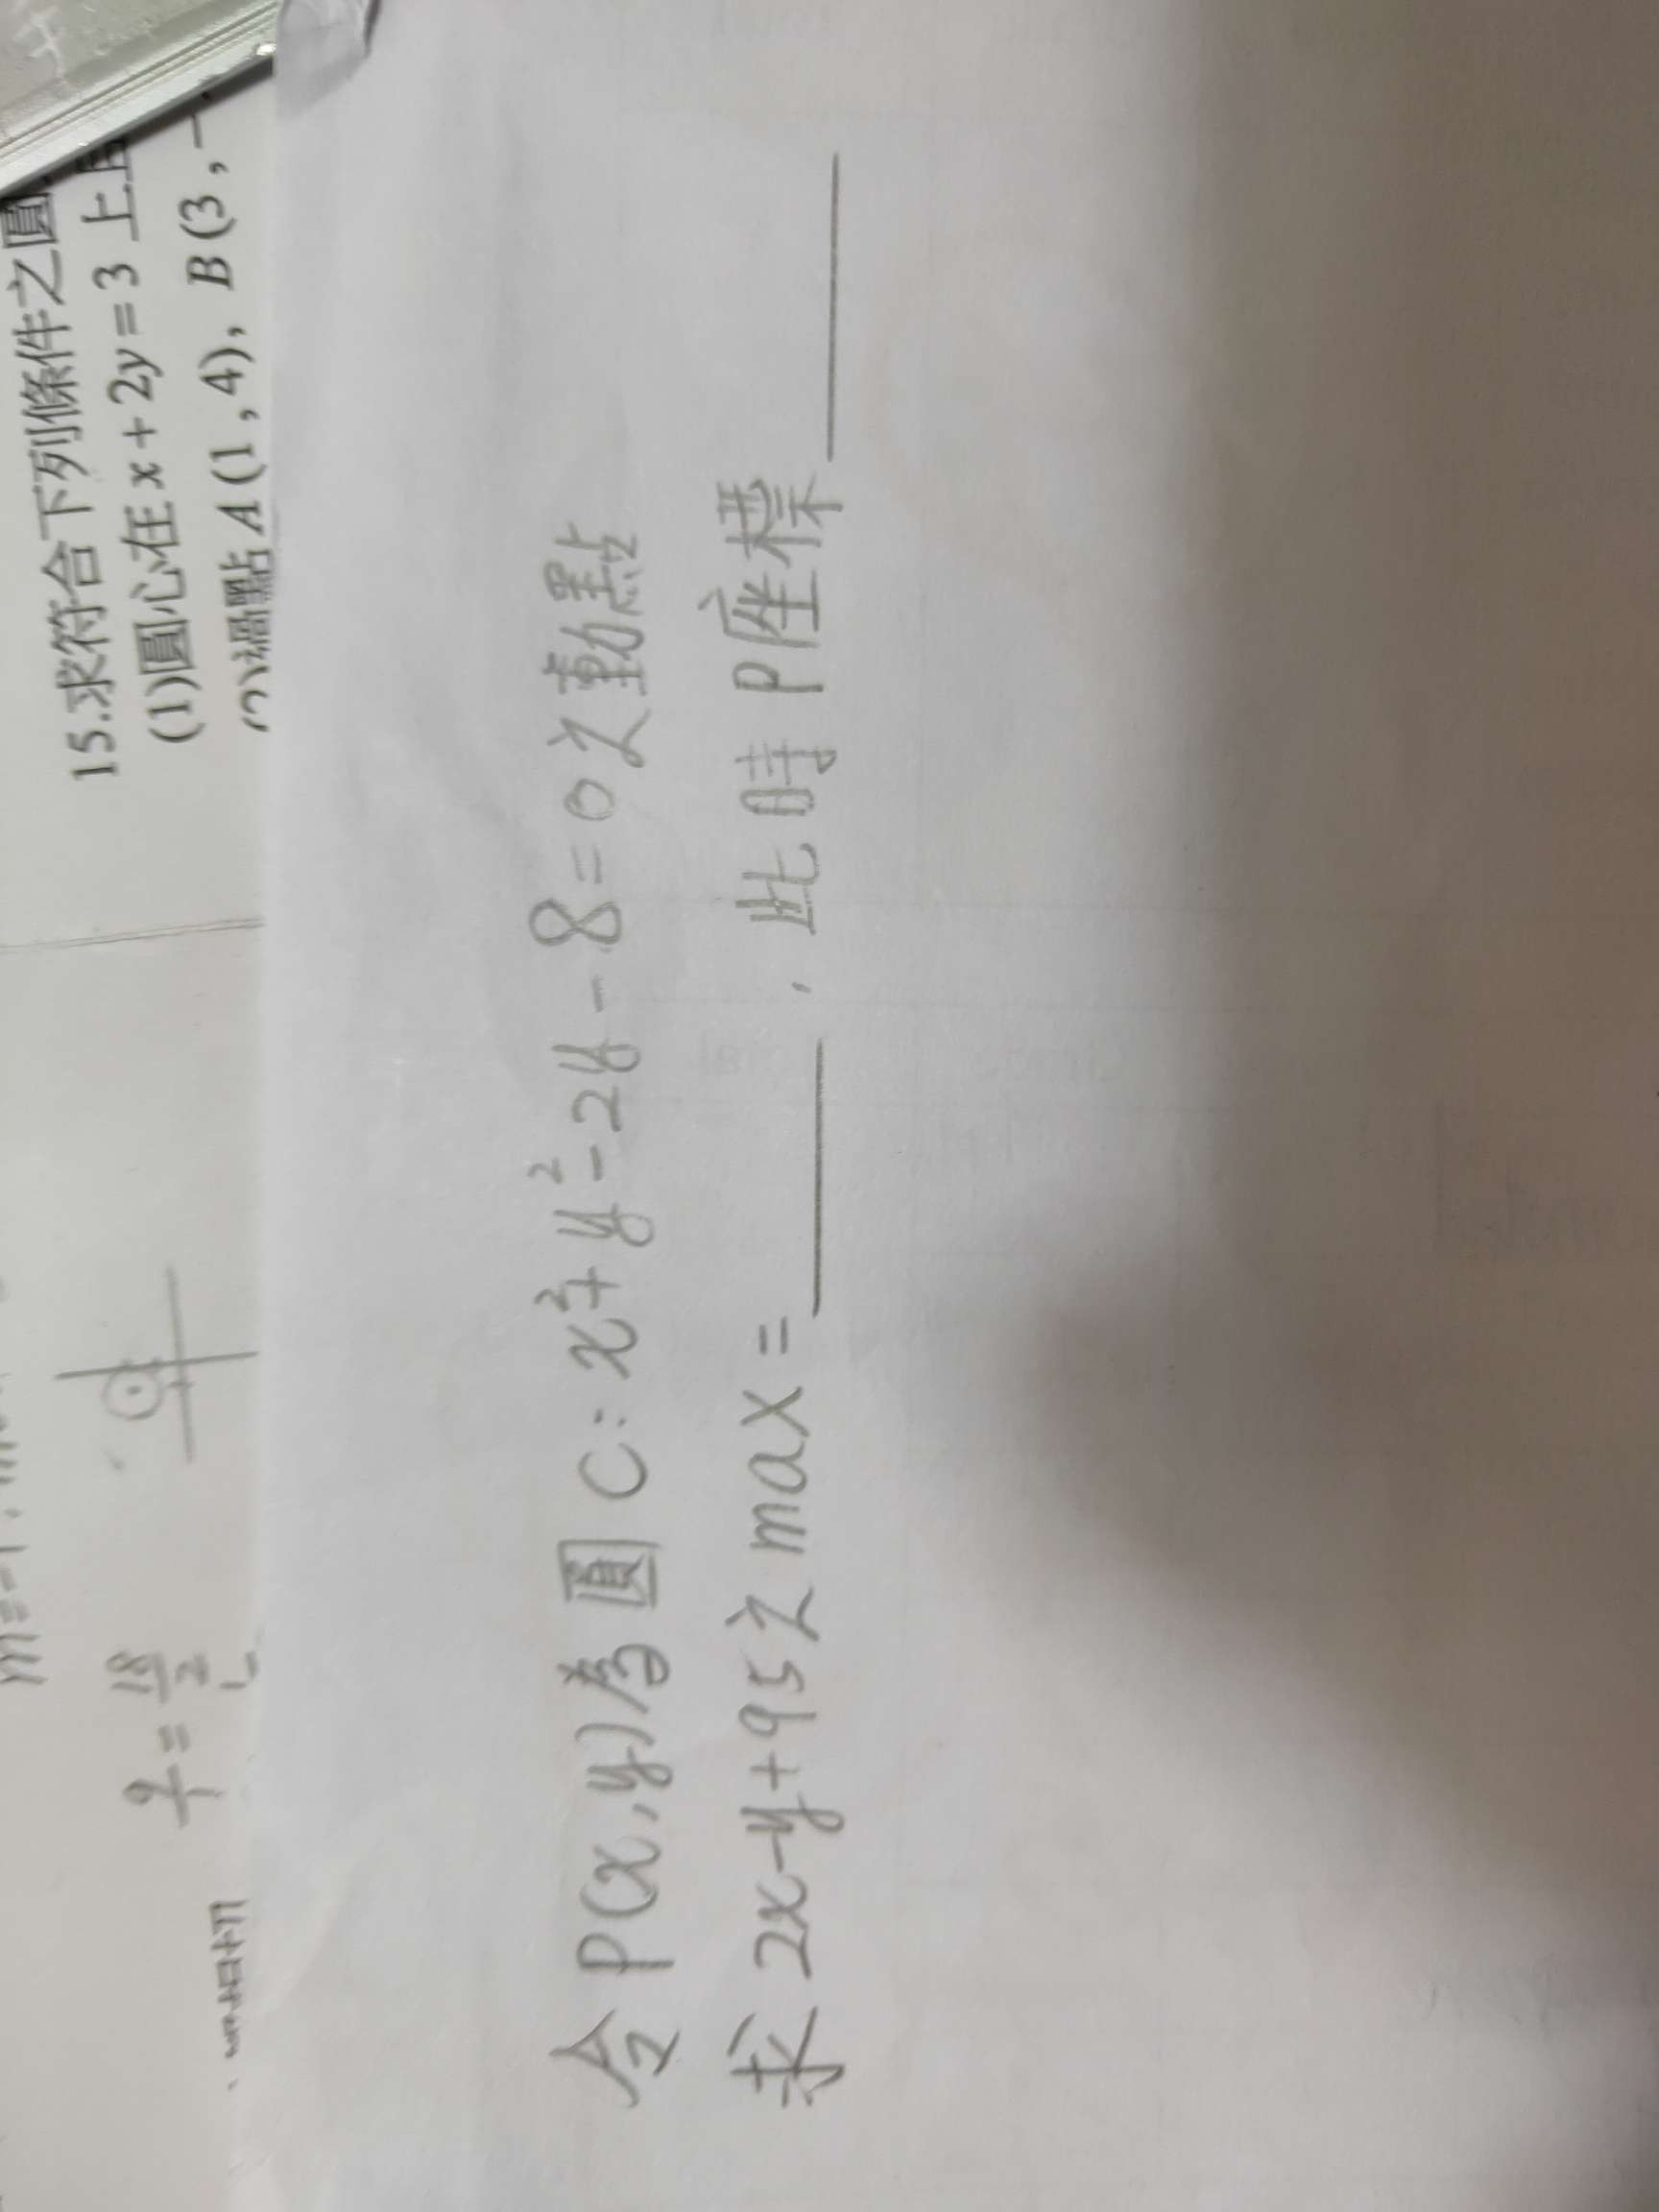 15.求符合下列條件之圓
(1)圓心在 x + 2y = 3 上
(2)過點 A (1 , 4), B (3 , −
9/1 = 18/2
令 P(x,y)為圓 C: x²+y²-2y-8=0之動點
求 2x-y+95之 max = ______ , 此時 P座標 ______